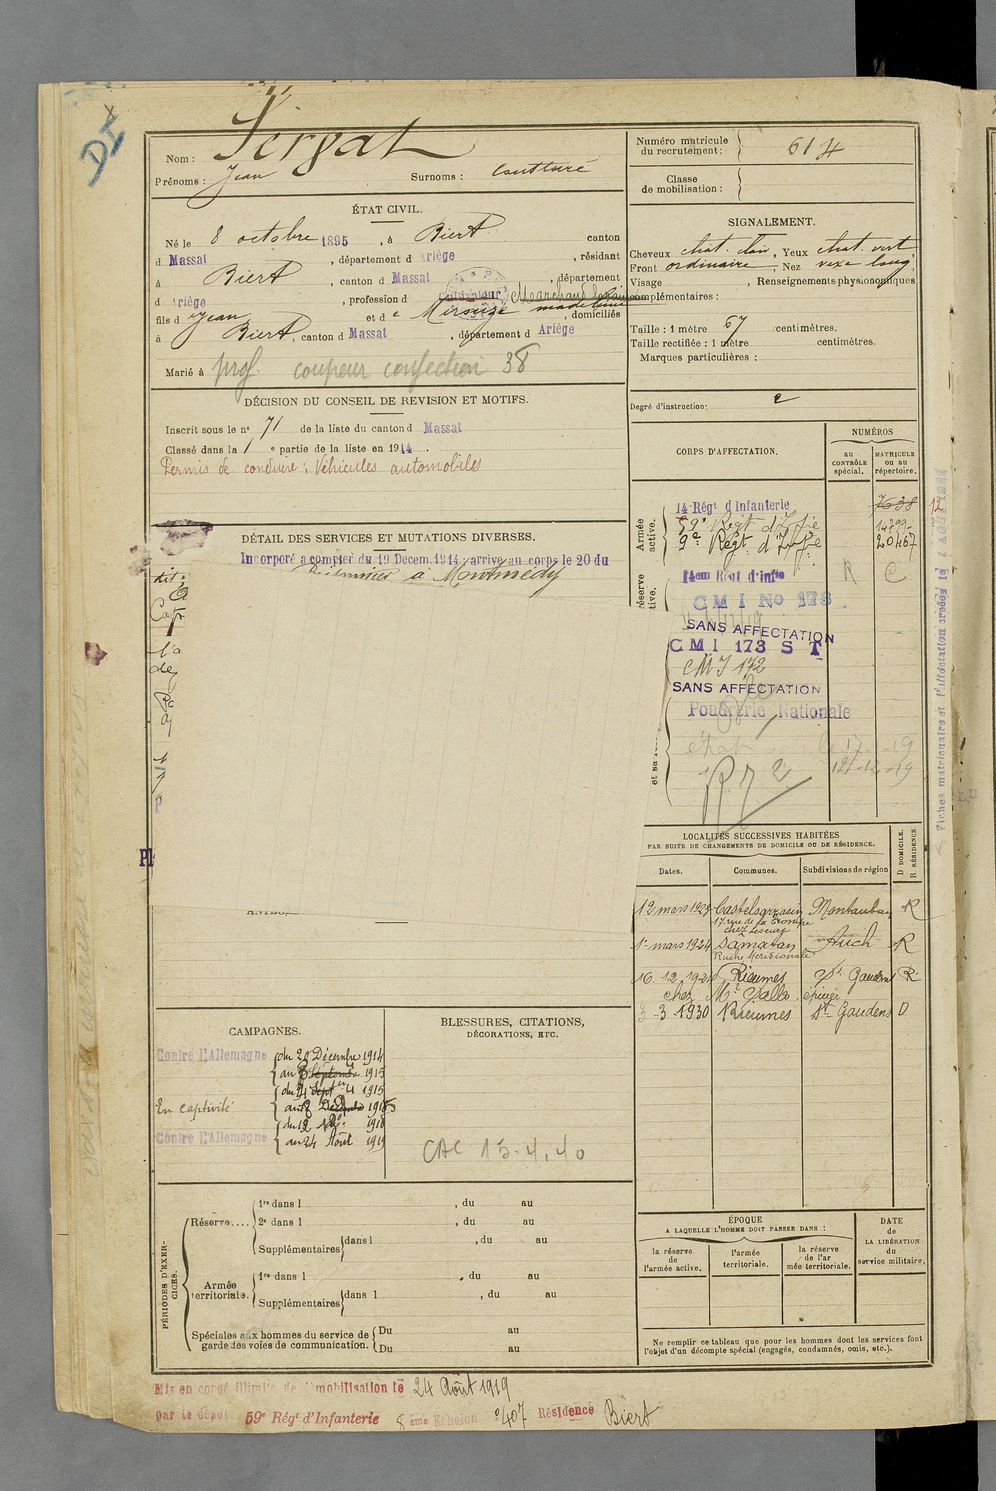 DI
Nom : Sergat
Prénoms : Jean Surnoms :
Numéro matricule
du recrutement : 614
Classe
de mobilisation :
ÉTAT CIVIL.
Né le 8 octobre 1895, à Biert canton
d Massat, département d Ariège, résidant
à Biert, canton d Massat, département
d Ariège, profession d cultivateur Marchand
fils d Jean et d e Mirouze madeleine, domiciliés
à Biert, canton d Massat, département d Ariège
Marié à prof. coupeur confection 38
SIGNALEMENT.
Cheveux chat. clair, Yeux chat. vert
Front ordinaire, Nez vexe long,
Visage , Renseignements physionomiques
complémentaires :
Taille : 1 mètre 67 centimètres.
Taille rectifiée : 1 mètre centimètres.
Marques particulières :
Degré d'instruction: 2
DÉCISION DU CONSEIL DE REVISION ET MOTIFS.
Inscrit sous le n° 71 de la liste du canton d Massat
Classé dans la 1 e partie de la liste en 1914.
Permis de conduire : Véhicules automobiles
CORPS D'AFFECTATION.
NUMÉROS
au
CONTRÔLE
spécial.
MATRICULE
ou au
répertoire.
Armée
active.
14 Régt d'Infanterie 7638
59e Regt d'Infie 14799
9e Regt d'Infie 20467
14em Régt d'Infie
R C
CMI No 173
SANS AFFECTATION
CMI 173 ST
CMI 172
SANS AFFECTATION
Poudrerie Nationale
DÉTAIL DES SERVICES ET MUTATIONS DIVERSES.
Incorporé a compter du 19 Decem. 1914; arrive au corps le 20 du
dit;
Prisonnier à Montmédy
LOCALITÉS SUCCESSIVES HABITÉES
PAR SUITE DE CHANGEMENTS DE DOMICILE OU DE RÉSIDENCE.
Dates. Communes. Subdivisions de région
D DOMICILE.
R RÉSIDENCE.
12 mars 192 Castelsarrasin Montauban R
17 rue de la
chez
1er mars 1924 Samatan Auch R
Ruche Méridionale
16. 12. 192 Rieumes St Gaudens R
chez Mr
3-3-1930 Rieumes St Gaudens D
CAMPAGNES.
Contre l'Allemagne
du 20 Décembre 1914
au 3 Septembre 1915
En captivité
du 4 Septer 1915
au 8 Décembre 1918
Contre l'Allemagne
du 1918
au 24 Août 1919
BLESSURES, CITATIONS,
DÉCORATIONS, ETC.
CAC 15.4.40
PÉRIODES D'EXER-
CICES.
Réserve....
1re dans l , du au
2e dans l , du au
Supplémentaires dans l , du au
Armée
territoriale.
1re dans l , du au
Supplémentaires dans l , du au
Spéciales aux hommes du service de
garde des voies de communication.
Du au
Du au
ÉPOQUE
A LAQUELLE L'HOMME DOIT PASSER DANS :
la réserve
de
l'armée active.
l'armée
territoriale.
la réserve
de l'ar
mée territoriale.
DATE
de
LA LIBÉRATION
du
service militaire.
Ne remplir ce tableau que pour les hommes dont les services font
l'objet d'un décompte spécial (engagés, condamnés, omis, etc.).
Mis en congé illimité de démobilisation le 24 Août 1919
par le dépôt 59e Régt d'Infanterie 8 eme Echelon n°407 Résidence Biert